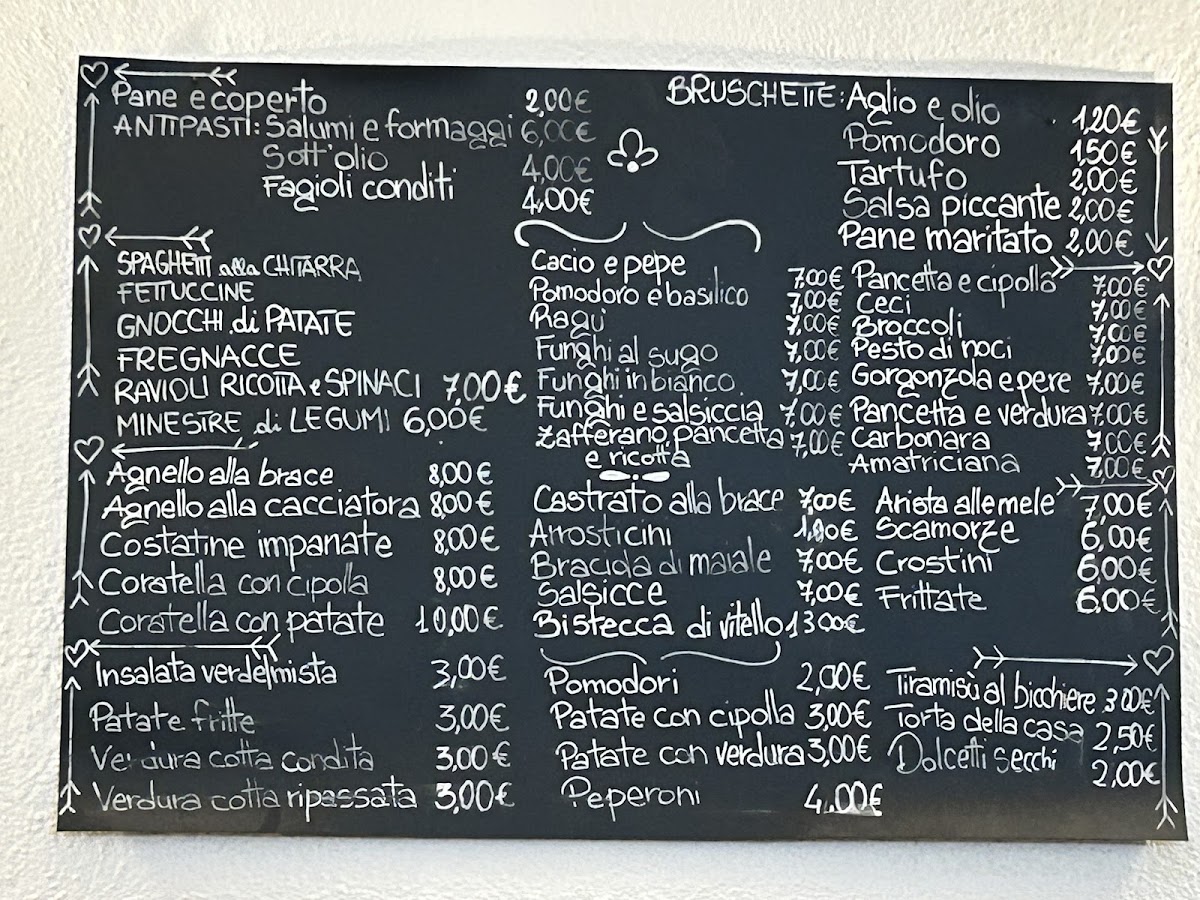 Pane e coperto 2,00€
ANTIPASTI: Salumi e formaggi 6,00€
Sott'olio 4,00€
Fagioli conditi 4,00€
BRUSCHETTE: Aglio e olio 1,20€
Pomodoro 1,50€
Tartufo 2,00€
Salsa piccante 2,00€
Pane maritato 2,00€
SPAGHETTI alla CHITARRA
FETTUCCINE
GNOCCHI di PATATE
FREGNACCE
RAVIOLI RICOTTA e SPINACI 7,00€
MINESTRE di LEGUMI 6,00€
Cacio e pepe 7,00€
Pomodoro e basilico 7,00€
Ragù 7,00€
Funghi al sugo 7,00€
Funghi in bianco 7,00€
Funghi e salsiccia 7,00€
Zafferano, pancetta 7,00€
e ricotta
Pancetta e cipolla 7,00€
Ceci 7,00€
Broccoli 7,00€
Pesto di noci 7,00€
Gorgonzola e pere 7,00€
Pancetta e verdura 7,00€
Carbonara 7,00€
Amatriciana 7,00€
Agnello alla brace 8,00€
Agnello alla cacciatora 8,00€
Costatine impanate 8,00€
Coratella con cipolla 8,00€
Coratella con patate 10,00€
Castrato alla brace 7,00€
Arrosticini
Braciola di maiale 7,00€
Salsicce 7,00€
Bistecca di vitello 13 00€
Arista alle mele 7,00€
Scamorze 6,00€
Crostini 6,00€
Frittate 6,00€
Insalata verde/mista 3,00€
Patate fritte 3,00€
Verdura cotta condita 3,00€
Verdura cotta ripassata 3,00€
Pomodori 2,00€
Patate con cipolla 3,00€
Patate con verdura 3,00€
Peperoni 4,00€
Tiramisù al bicchiere 3,00€
Torta della casa 2,50€
Dolcetti secchi 2,00€